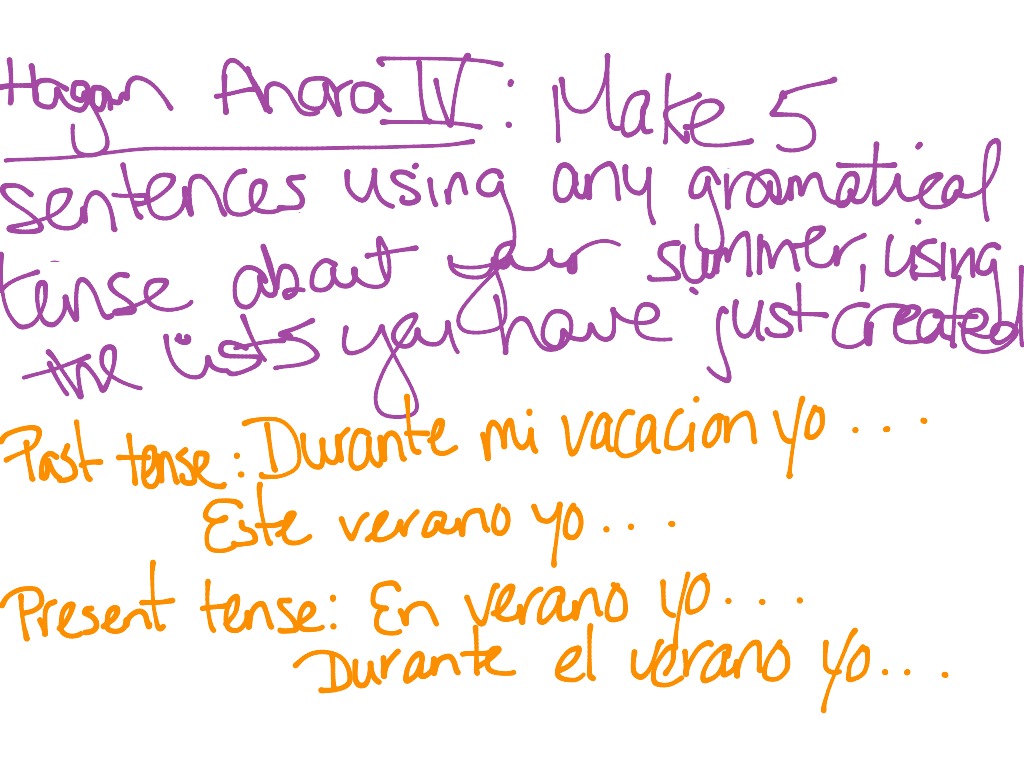 Hagan Ahora IV: Make 5
sentences using any gramatical
tense about your summer, using
the lists you have just created
Past tense: Durante mi vacacion yo...
Este verano yo...
Present tense: En verano yo...
Durante el verano yo...